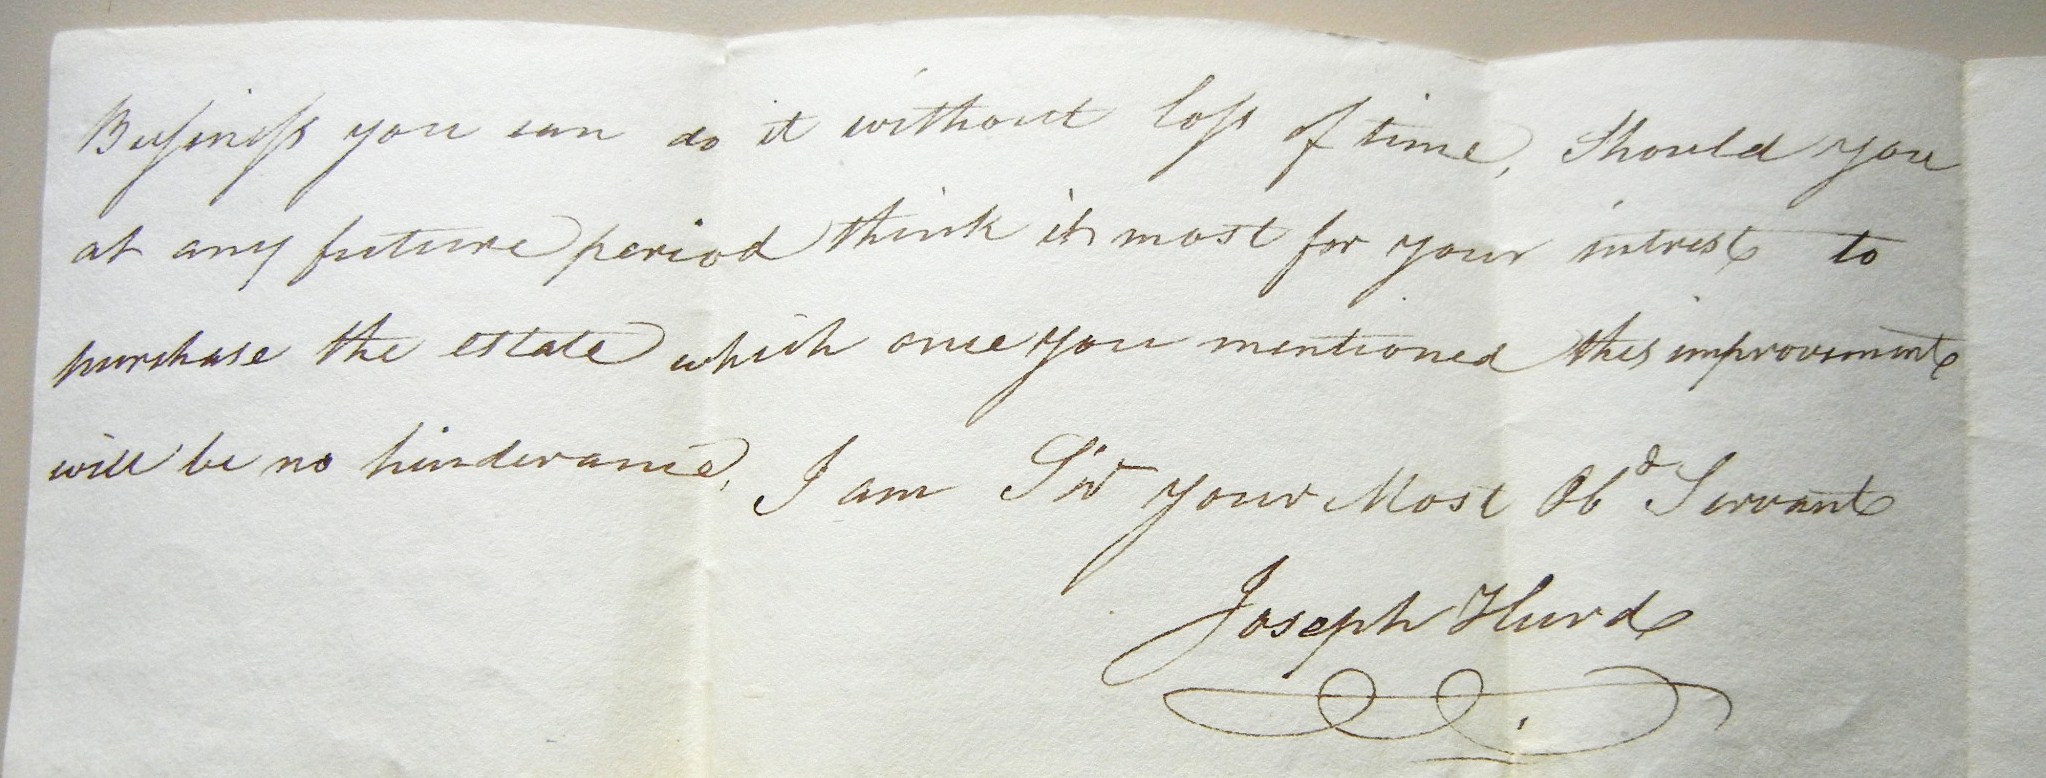 Busineſs you can do it without loſs of time, Should you
at any future period think it most for your intrest to
purchase the estate which once you mentioned this improvement
will be no hinderance, I am Sir your Most Obᵈ Servant
Joseph Hurd